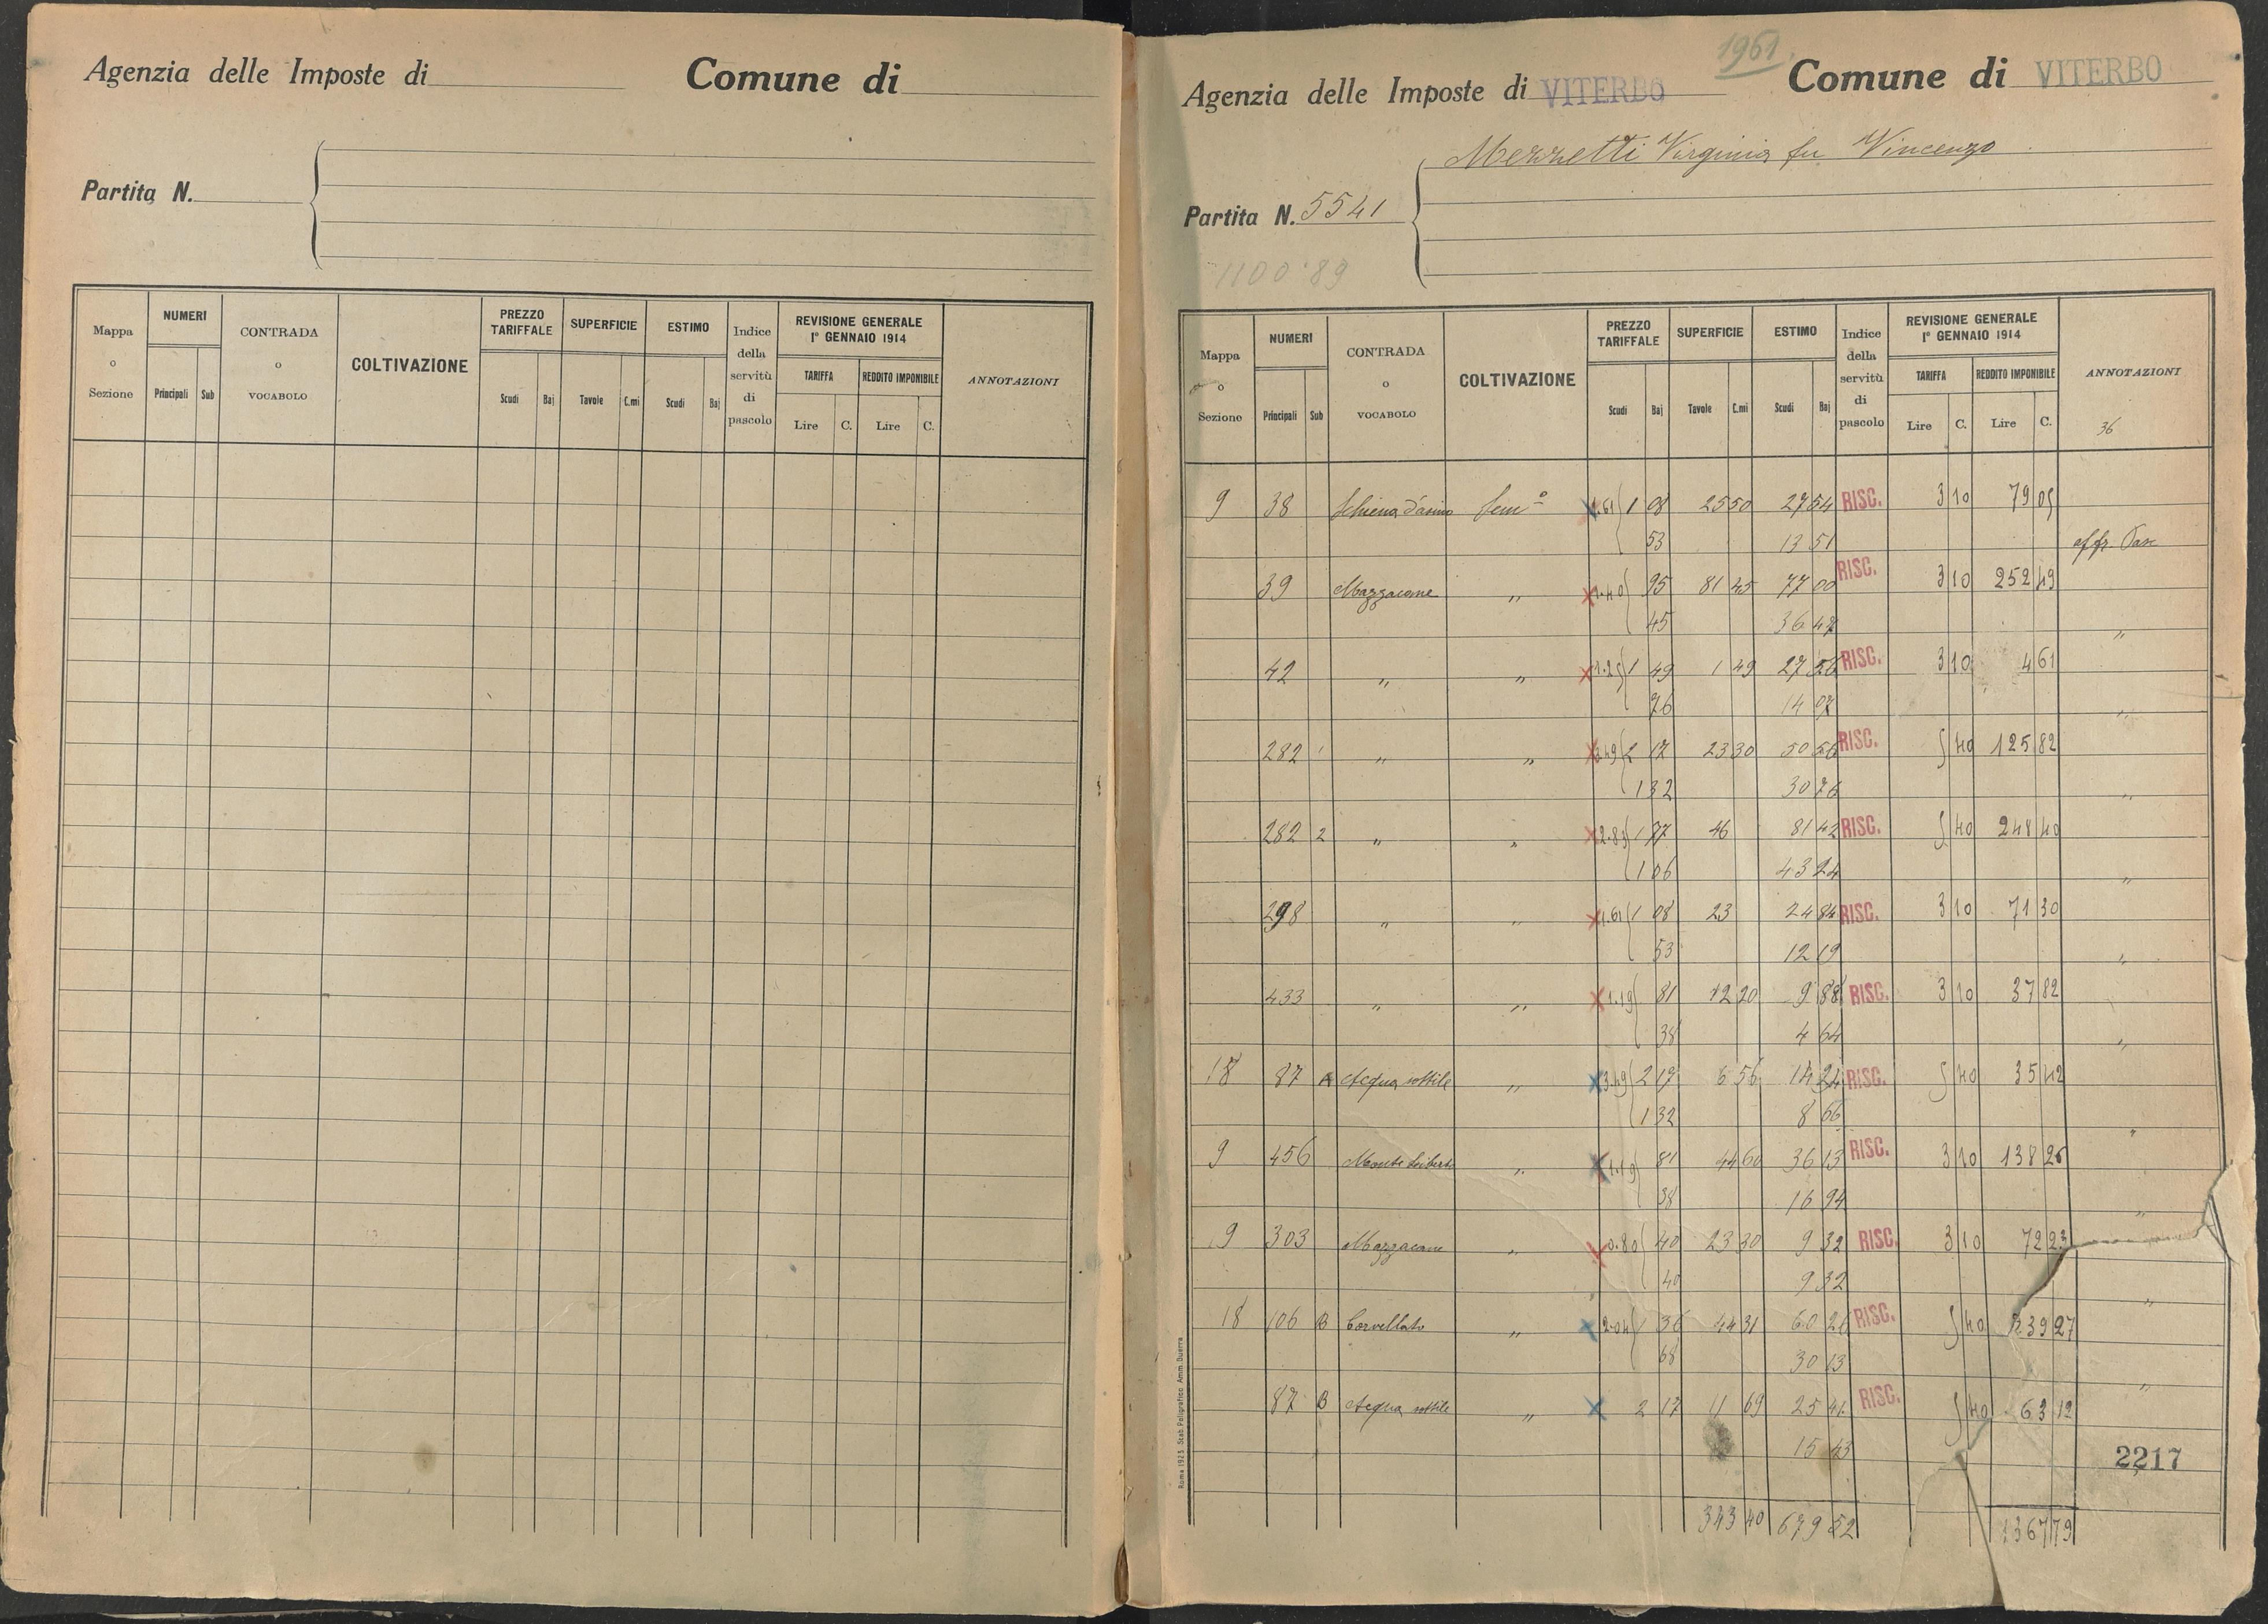 Agenzia delle Imposte di Comune di
Partita N.
Mappa o Sezione NUMERI Principali Sub CONTRADA o VOCABOLO COLTIVAZIONE PREZZO TARIFFALE Scudi Baj SUPERFICIE Tavole C.mi ESTIMO Scudi Baj Indice della servitù di pascolo REVISIONE GENERALE 1° GENNAIO 1914 TARIFFA Lire C. REDDITO IMPONIBILE Lire C. ANNOTAZIONI
1961
Agenzia delle Imposte di VITERBO Comune di VITERBO
Virginia fu Vincenzo
Partita N. 5541
1100.89
Mappa o Sezione NUMERI Principali Sub CONTRADA o VOCABOLO COLTIVAZIONE PREZZO TARIFFALE Scudi Baj SUPERFICIE Tavole C.mi ESTIMO Scudi Baj Indice della servitù di pascolo REVISIONE GENERALE 1° GENNAIO 1914 TARIFFA Lire C. REDDITO IMPONIBILE Lire C. ANNOTAZIONI
36
9 38 Schiena d'asino Sem° 1.61 1 08 25 50 27 54 RISC. 3 10 79 05
53 13 51
39 Mazzacane " 1.40 95 81 45 77 00 RISC. 3 10 252 49
45 36 "
42 " " 1 49 1 49 27 RISC. 3 10 4 61
76 14 "
282 1 " " 3.49 2 17 23 30 50 56 RISC. 5 40 125 82
1 32 30 76 "
282 2 " " 2.83 1 77 46 81 42 RISC. 5 40 248 40
1 06 43 24 "
298 " " 1.61 1 08 23 24 84 RISC. 3 10 71 30
53 12 19 "
433 " " 1.19 81 12 20 9 88 RISC. 3 10 37 82
38 4 64 "
18 87 A Acqua sottile " 3.49 2 17 6 56 14 24 RISC. 5 40 35 42
1 32 8 66 "
9 456 Monte " 1.19 81 44 60 36 13 RISC. 3 10 138 26
38 16 94 "
9 303 Mazzacane " 0.80 40 23 30 9 32 RISC. 3 10 72 23
40 9 32 "
18 106 B Corvellato " 2.04 1 36 44 31 60 26 RISC. 5 40 239 27
68 30 13 "
87 B Acqua sottile " 2 17 11 69 25 41 RISC. 5 40 63 12
15 43
2217
343 40 679 52 1367 79
Roma 1923 Stab. Poligrafico Amm. Guerra